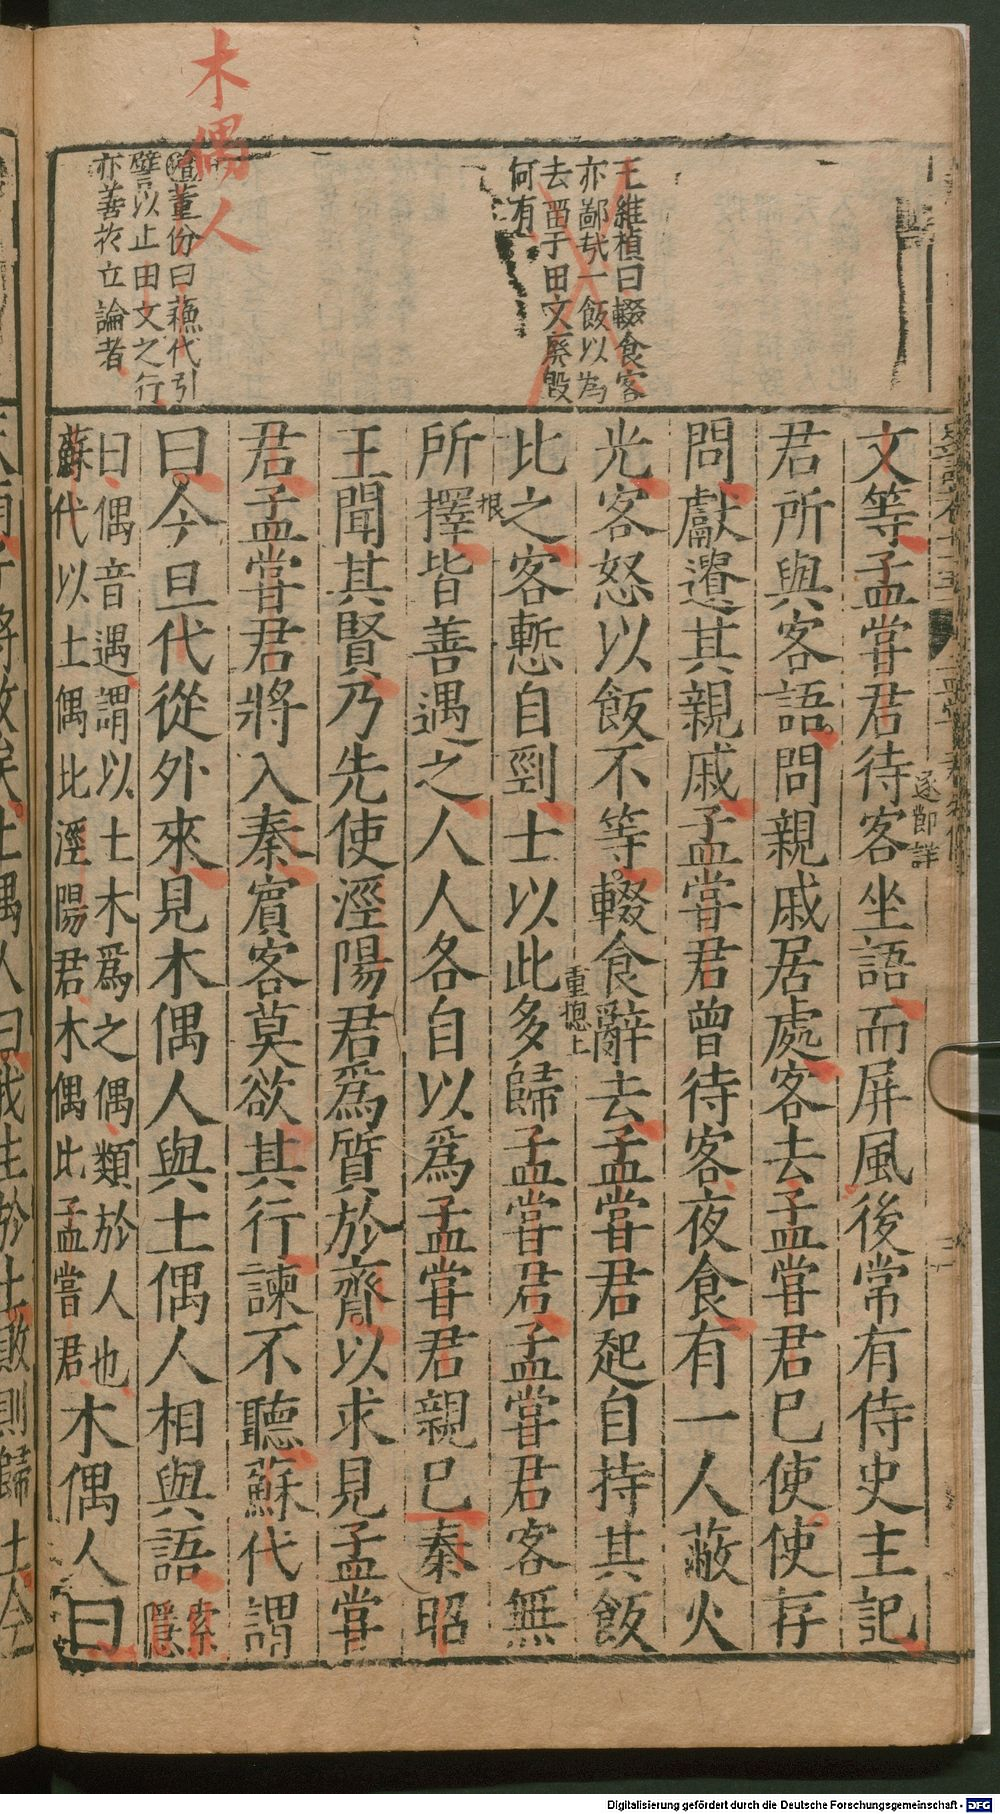 木偶人
王維楨曰輟食客
亦鄙哉一飯以為
去畱于田文廢毁
何有
董份曰蘓代引
譬以止田文之行
亦善於立論者
文等孟甞君待客坐語而屏風後常有侍史主記
逐節詳
君所與客語問親戚居處客去孟甞君已使使存
問獻遺其親戚孟甞君曾待客夜食有一人蔽火
光客怒以飯不等輟食辭去孟甞君起自持其飯
重摠上
比之客慙自剄士以此多歸孟甞君孟甞君客無
根
所擇皆善遇之人人各自以爲孟甞君親己秦昭
王聞其賢乃先使涇陽君爲質於齊以求見孟甞
君孟甞君將入秦賔客莫欲其行諫不聽蘇代謂
曰今旦代從外來見木偶人與土偶人相與語索
隱
曰偶音遇謂以土木爲之偶類於人也
蘇代以土偶比涇陽君木偶比孟嘗君
木偶人曰
Digitalisierung gefördert durch die Deutsche Forschungsgemeinschaft - DFG